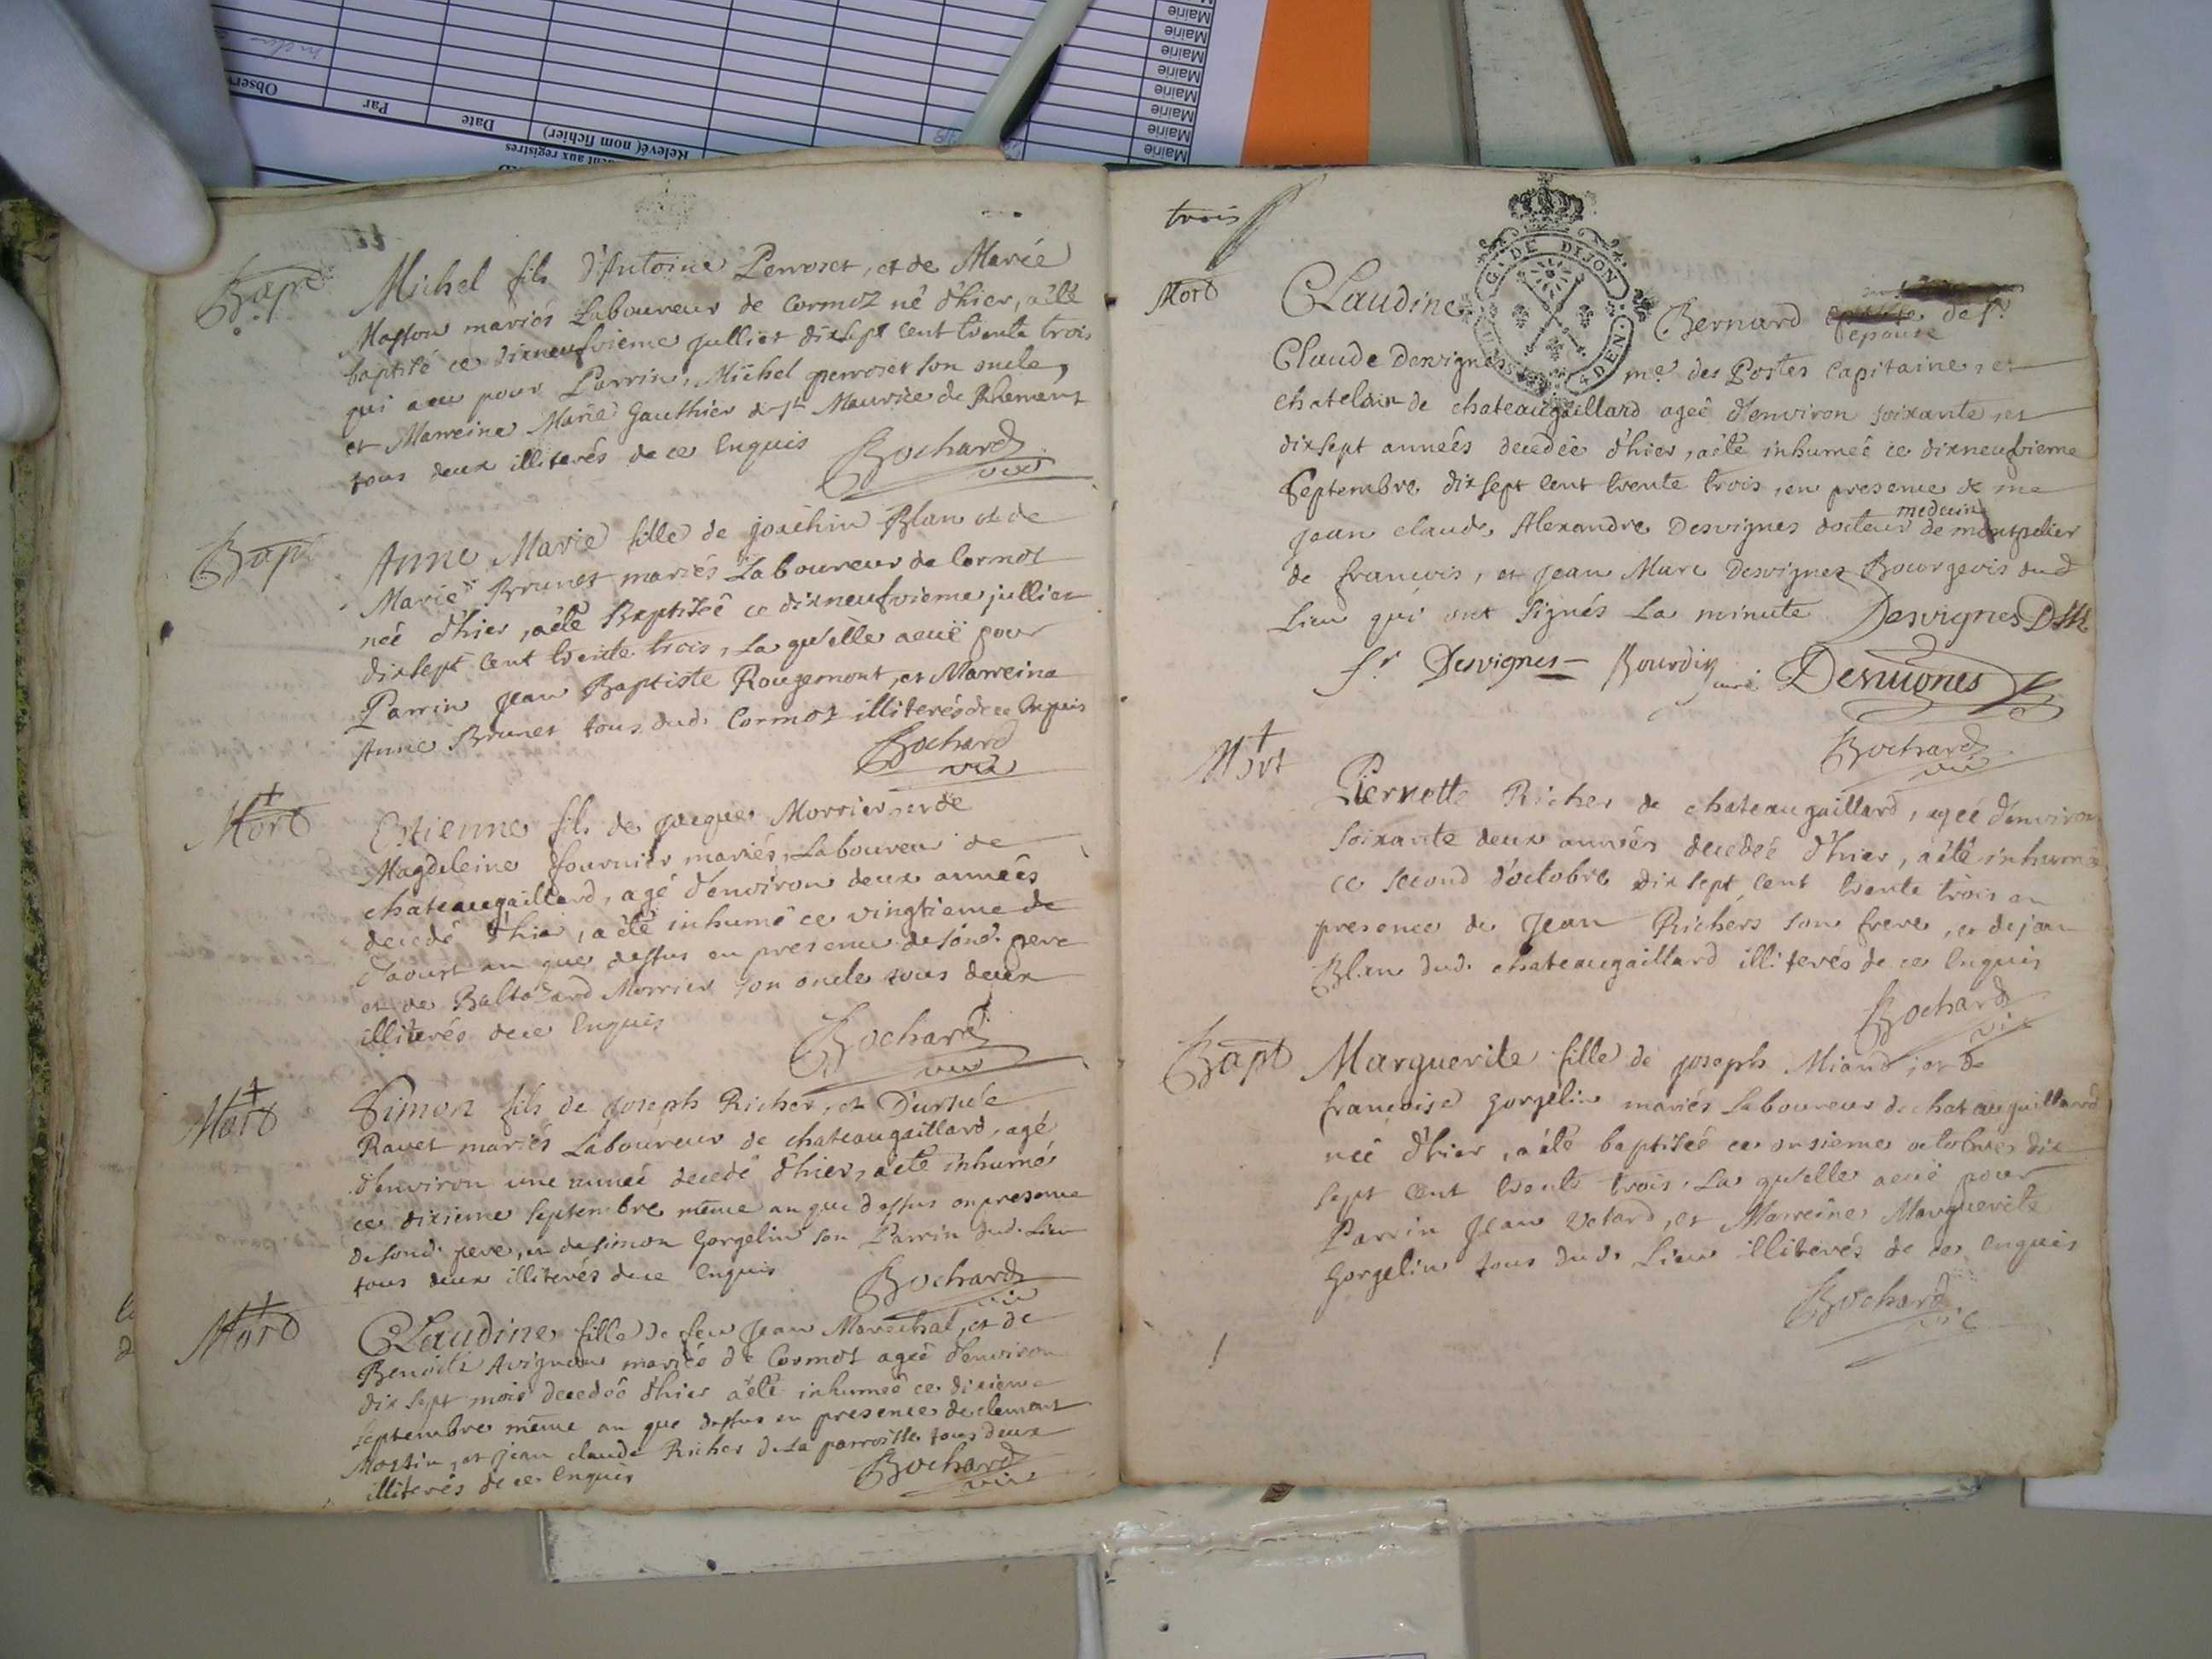 Mairie
Mairie
Mairie
Mairie
Mairie
Mairie
Mairie
Mairie
Observ
Par
Date
Relevé (nom fichier)
ent aux registres
Bapt
Michel fils d'Antoine Perroset, et de Marie
Masson mariés Laboureur de Cormoz né d'hier, a été
baptisé ce dixneufvieme julliet dixsept cent trente trois
qui a eu pour Parrin, Michel perroset son oncle,
et Marreine Marie Gauthier de st Maurice de Rhemens
tous deux illiterés de ce Enquis
Bochard
vic
Bapt
Anne Marie fille de joachin Blan et de
Marie Brunet mariés Laboureur de Cormot
neé d'hier, a été Baptizeé ce dixneufvieme julliet
dixsept cent trente trois, La qu'elle a euë pour
Parrin Jean Baptiste Rougemont, et Marreine
Anne Brunet tous dud. Cormoz illiterés de ce Enquis
Bochard
vic
Mort
Estienne fils de jacques Morrier, et de
Magdeleine fournier mariés, Laboureur de
chateaugaillard, agé d'environ deux anneés
decedé d'hier, a été inhumé ce vingtieme de
d'aoust an que dessus en presence de sond. pere
et de Baltazard Morrier son oncle tous deux
illiterés de ce Enquis
Bochard
vic
Mort
Simon fils de Joseph Richer, et D'ursule
Ravet mariés Laboureur de chateaugaillard, agé
d'environ une anneé decedé d'hier, a eté inhumé
ce dixieme septembre même an que dessus en presence
de sond. pere, et de simon Gorgelin son Parrin dud. Lieu
tous deux illiterés de ce Enquis
Bochard
vic
Mort
CLaudine fille de feu Jean Marechal, et de
Benoite Avignon mariés de Cormoz ageé d'environ
dix sept mois decedeé d'hier a été inhumeé ce dixieme
septembre même an que dessus en presence de clemont
Mortin, et jean claude Richer de La parroisse tous deux
illiterés de ce Enquis
Bochard
vic
trois
G. DE DIJON
4 DEN.
Mort
CLaudine Bernard épouse de sr.
Claude Desvignes me. des Postes Capitaine, et
chatelain de chateaugaillard ageé d'environ soixante, et
dixsept anneés decedeé d'hier, a été inhumeé ce dixneufvieme
Septembre dixsept cent trente trois, en presence de me
jean claude Alexandre Desvignes docteur medecin de montpelier
de francois, et Jean Marc Desvignes Bourgeois dud
Lieu qui ont signés La minute Desvignes DM
fr Desvignes Bourdin curé Desvignes
Bochard
vic
Mort
Pierrette Richer de chateaugaillard, ageé d'environ
soixante deux anneés decedeé d'hier, a été inhumée
ce second d'octobre dix sept cent trente trois en
presence de Jean Richers son frere, et de jean
Blan dud. chateaugaillard illiterés de ce Enquis
Bochard
vic
Bapt
Marguerite fille de joseph Miand, et de
francoise Gorgelin mariés Laboureur de chateaugaillard
neé d'hier, a été baptizeé ce onsieme octobre dix
sept cent trente trois. La qu'elle a euë pour
Parrin Jean Vetard, et Marreine Marguerite
Gorgelin tous dud. Lieu illiterés de ce Enquis
Bochard
vic